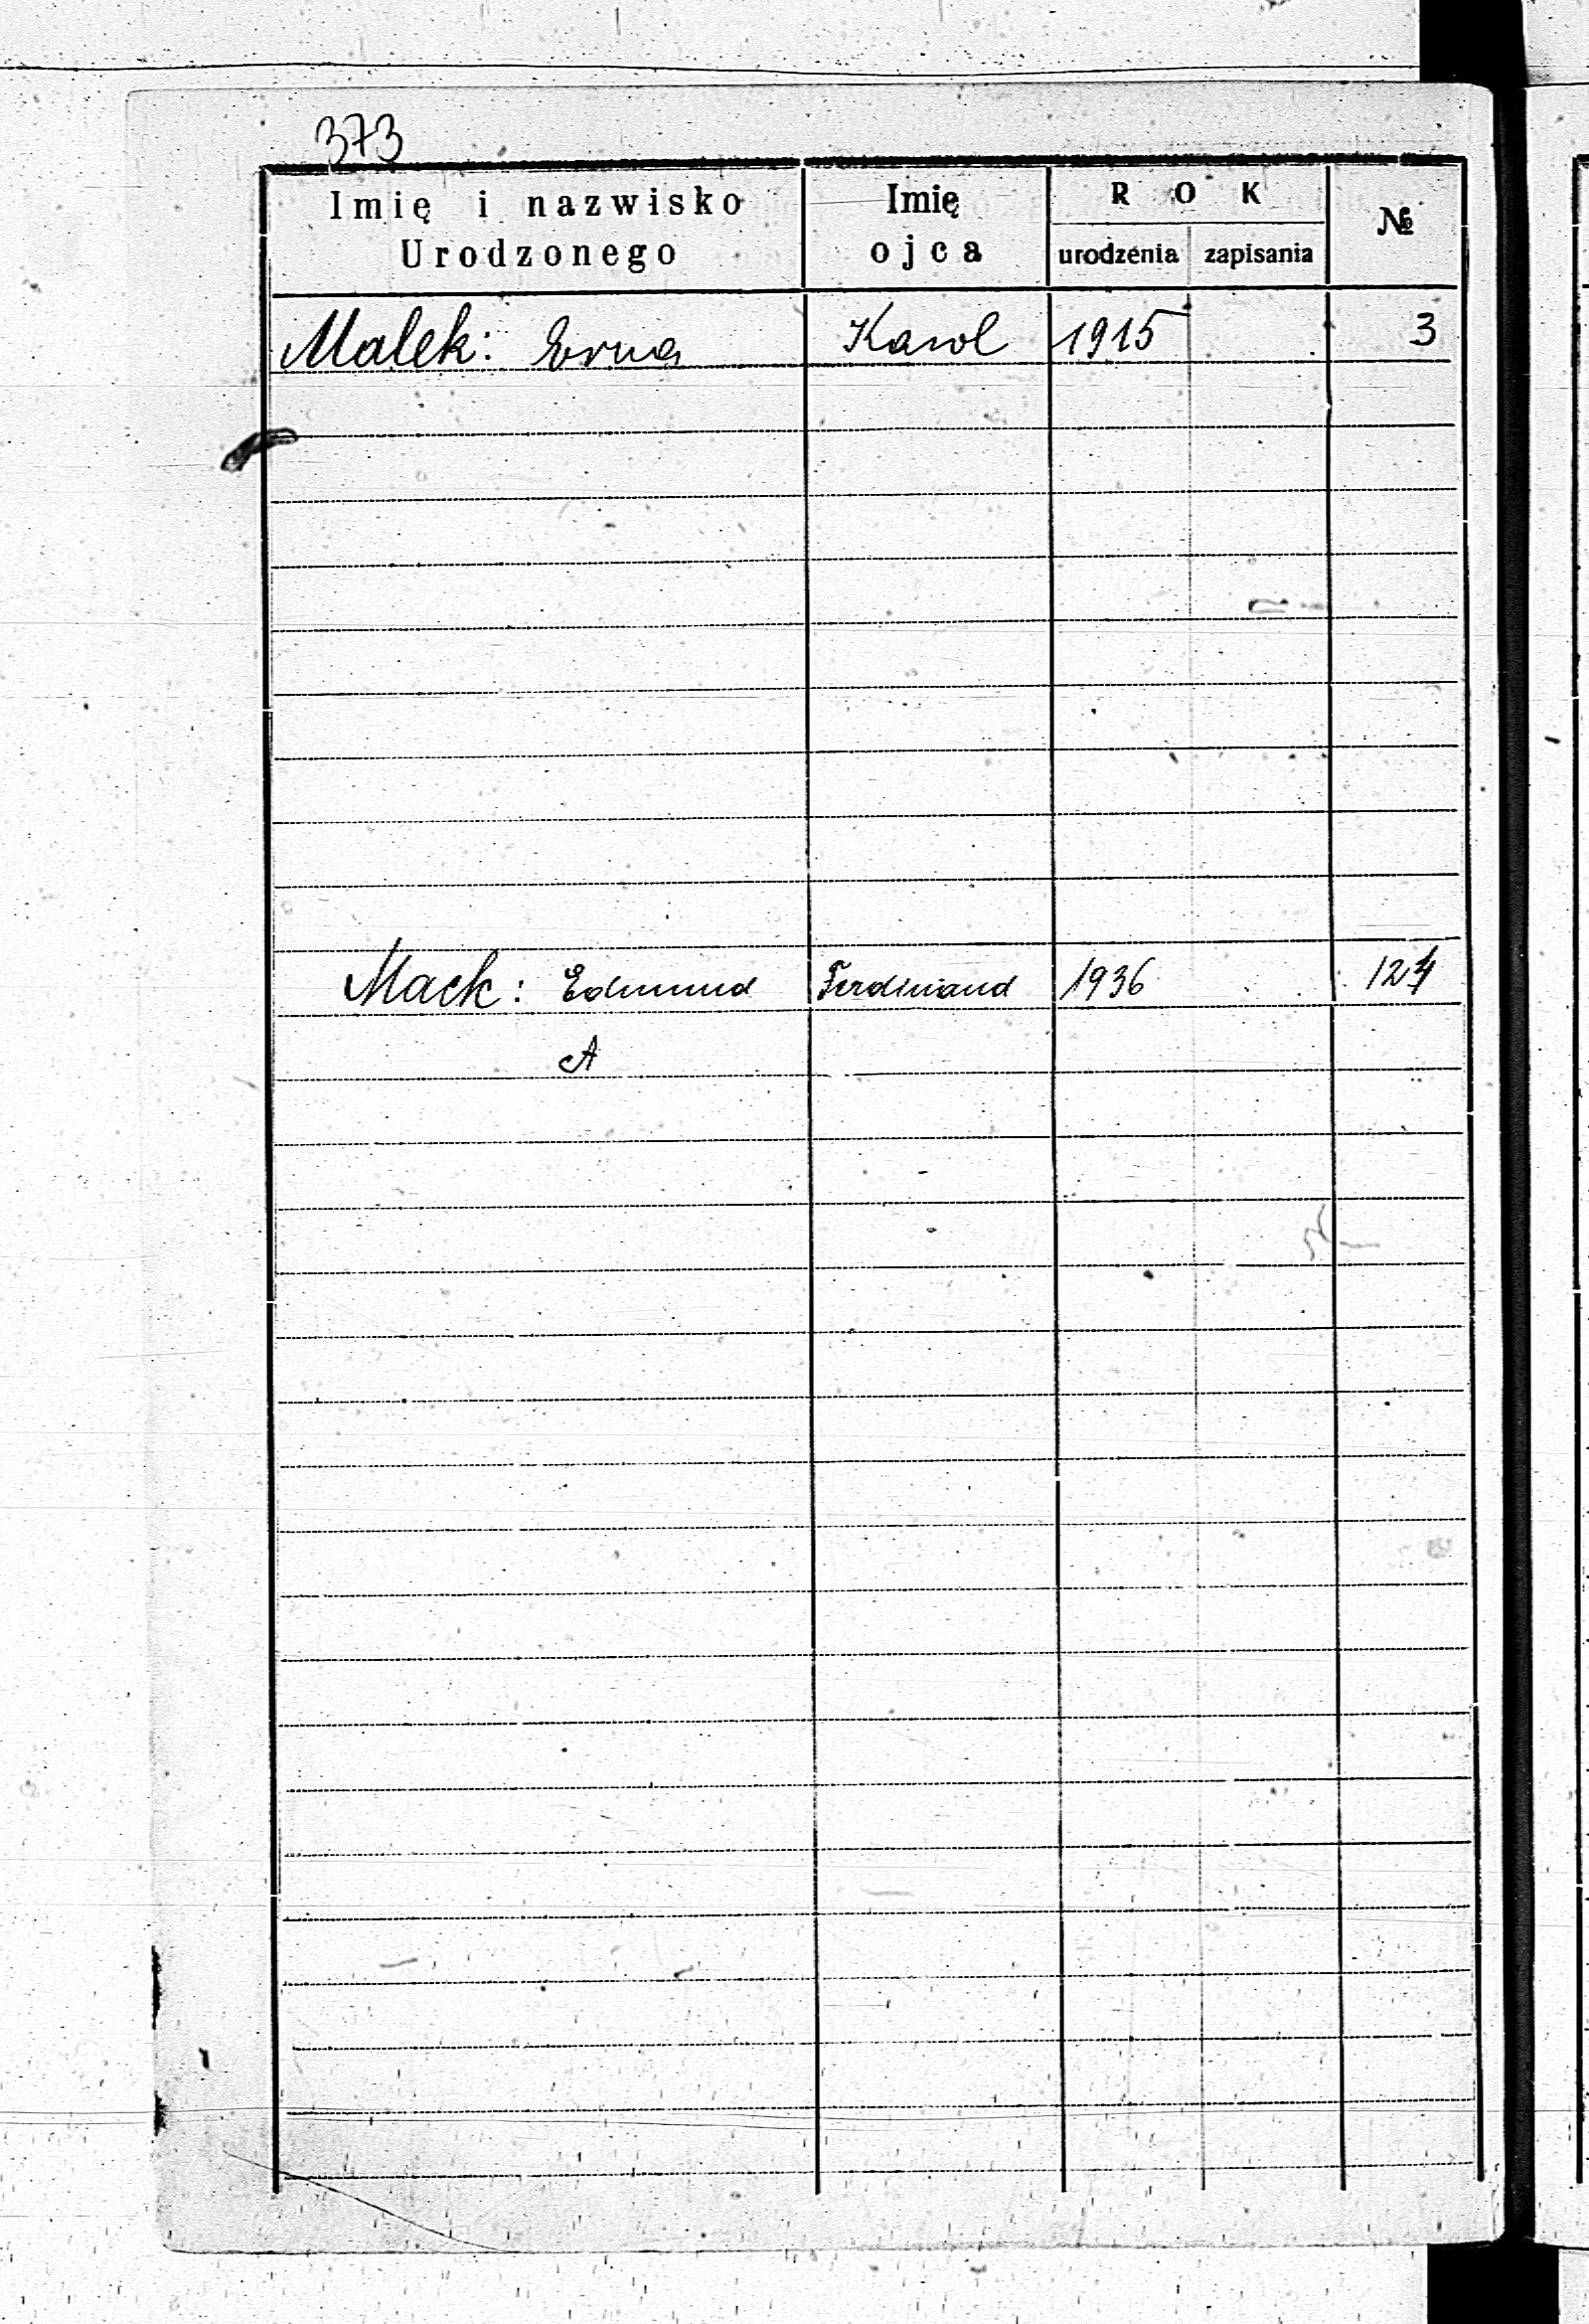 373
Imię i nazwisko Urodzonego
Imię ojca
ROK
urodzenia zapisania
№
Malek: Erna Karol 1915 3
Mack: Edmund Ferdinand 1936 124
A